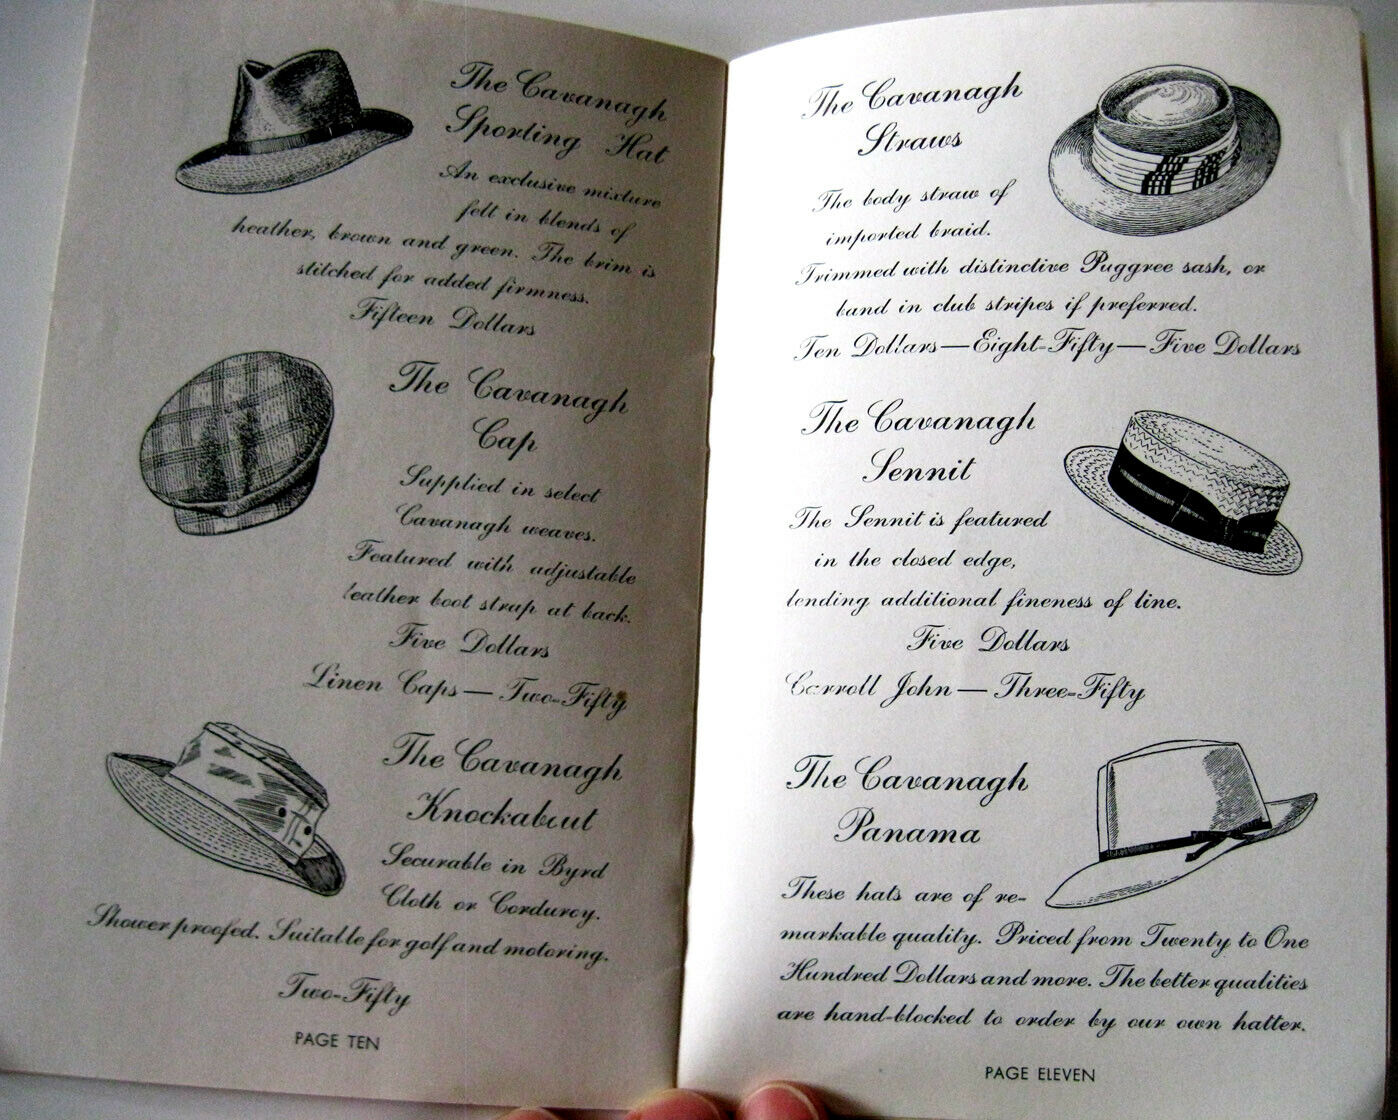 The Cavanagh
Sporting Hat
An exclusive mixture
felt in blends of
heather, brown and green. The brim is
stitched for added firmness.
Fifteen Dollars
The Cavanagh
Cap
Supplied in select
Cavanagh weaves.
Featured with adjustable
leather boot strap at back.
Five Dollars
Linen Caps — Two-Fifty
The Cavanagh
Knockabout
Securable in Byrd
Cloth or Corduroy.
Shower proofed. Suitable for golf and motoring.
Two-Fifty
PAGE TEN
The Cavanagh
Straws
The body straw of
imported braid.
Trimmed with distinctive Puggree sash, or
band in club stripes if preferred.
Ten Dollars — Eight-Fifty — Five Dollars
The Cavanagh
Sennit
The Sennit is featured
in the closed edge,
lending additional fineness of line.
Five Dollars
Carroll John — Three-Fifty
The Cavanagh
Panama
These hats are of re-
markable quality. Priced from Twenty to One
Hundred Dollars and more. The better qualities
are hand-blocked to order by our own hatter.
PAGE ELEVEN